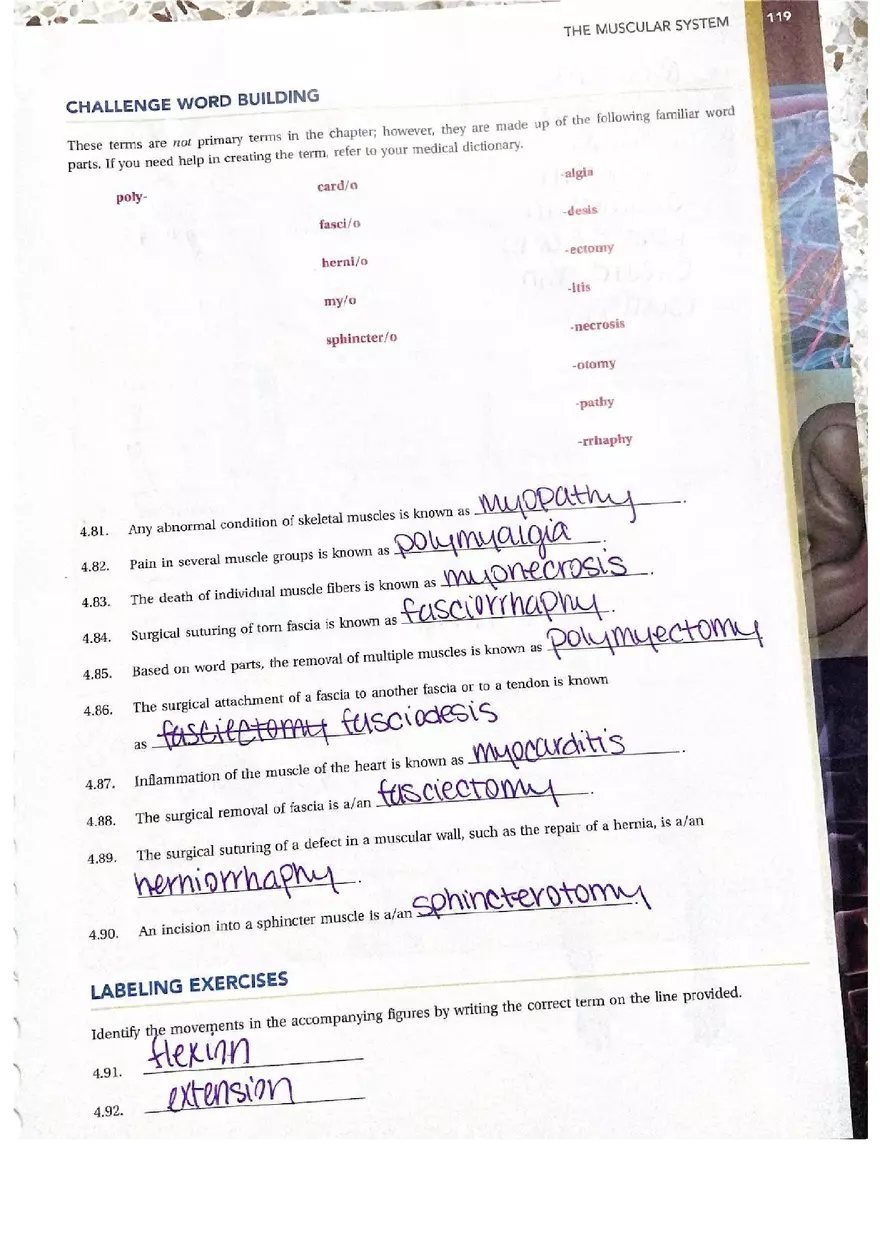 THE MUSCULAR SYSTEM 119
CHALLENGE WORD BUILDING
These terms are not primary terms in the chapter; however, they are made up of the following familiar word
parts. If you need help in creating the term, refer to your medical dictionary.
poly- card/o -algia
fasci/o -desis
herni/o -ectomy
my/o -itis
sphincter/o -necrosis
-otomy
-pathy
-rrhaphy
4.81. Any abnormal condition of skeletal muscles is known as myopathy.
4.82. Pain in several muscle groups is known as polymyalgia.
4.83. The death of individual muscle fibers is known as myonecrosis.
4.84. Surgical suturing of torn fascia is known as fasciorrhaphy.
4.85. Based on word parts, the removal of multiple muscles is known as polymyectomy
4.86. The surgical attachment of a fascia to another fascia or to a tendon is known
as fasciectomy fasciodesis
4.87. Inflammation of the muscle of the heart is known as myocarditis.
4.88. The surgical removal of fascia is a/an fasciectomy.
4.89. The surgical suturing of a defect in a muscular wall, such as the repair of a hernia, is a/an
herniorrhaphy.
4.90. An incision into a sphincter muscle is a/an sphincterotomy.
LABELING EXERCISES
Identify the movements in the accompanying figures by writing the correct term on the line provided.
4.91. flexion
4.92. extension